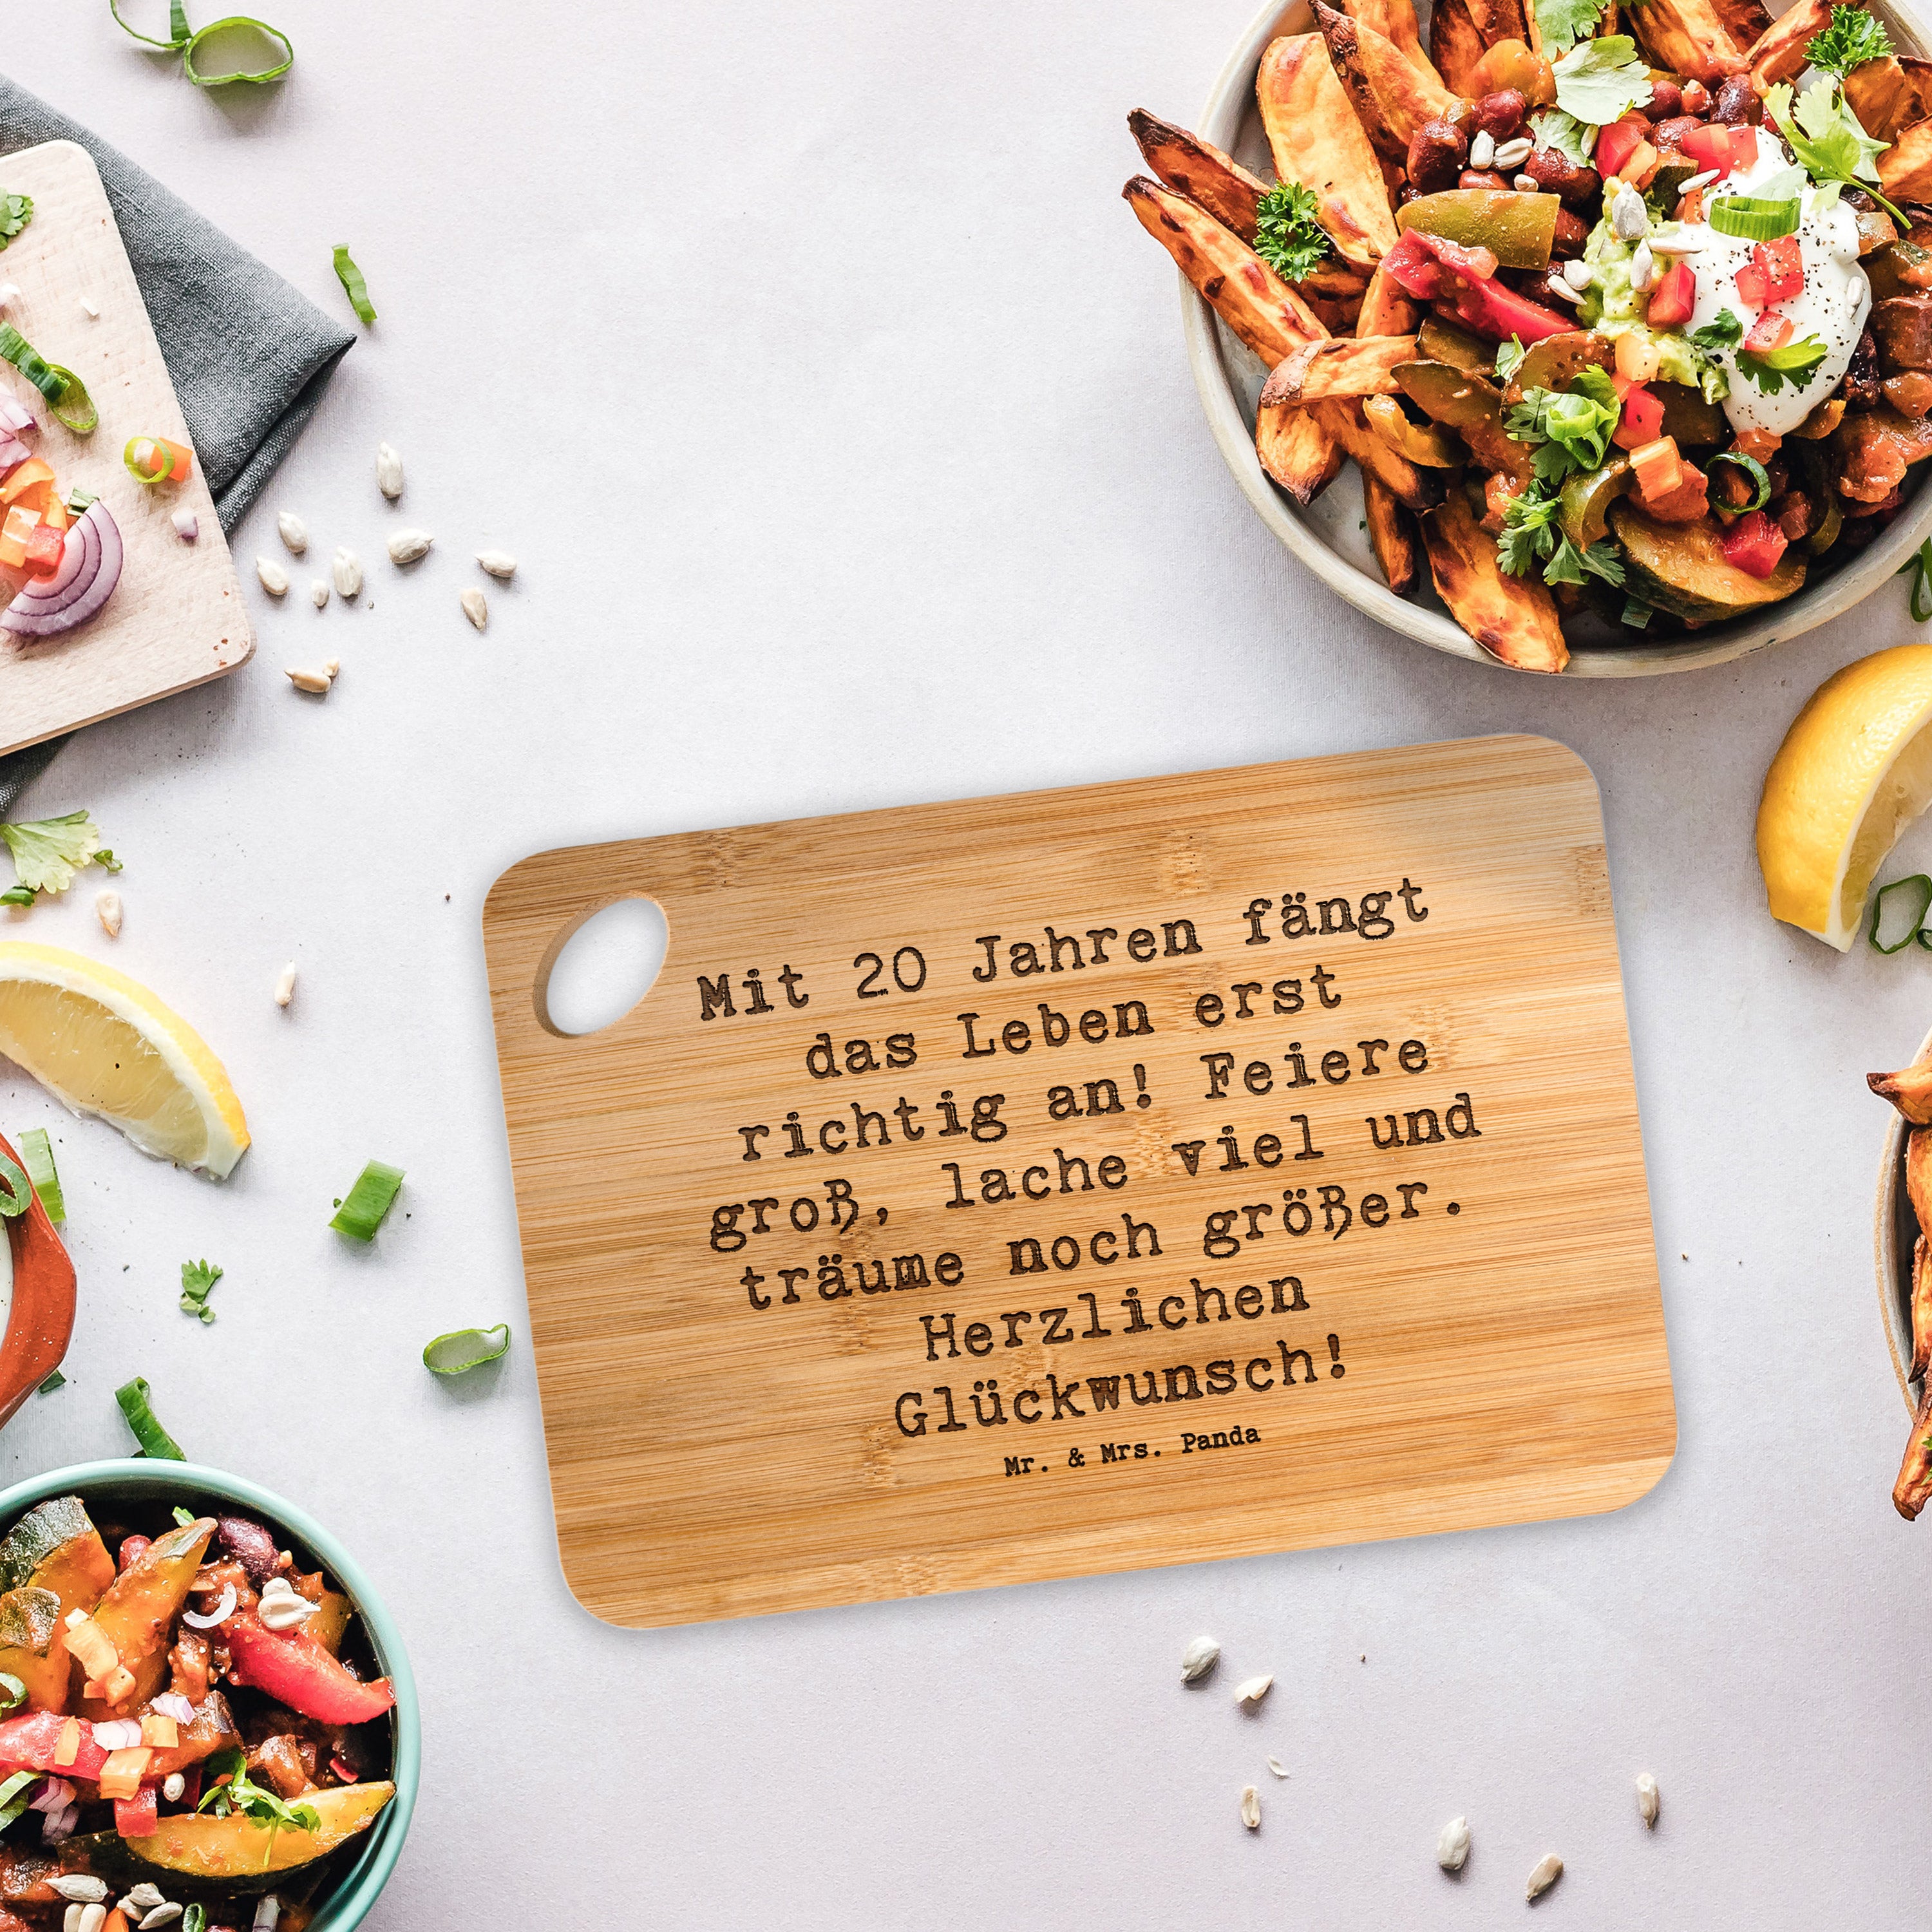 Mit 20 Jahren fängt
das Leben erst
richtig an! Feiere
groß, lache viel und
träume noch größer.
Herzlichen
Glückwunsch!
Mr. & Mrs. Panda